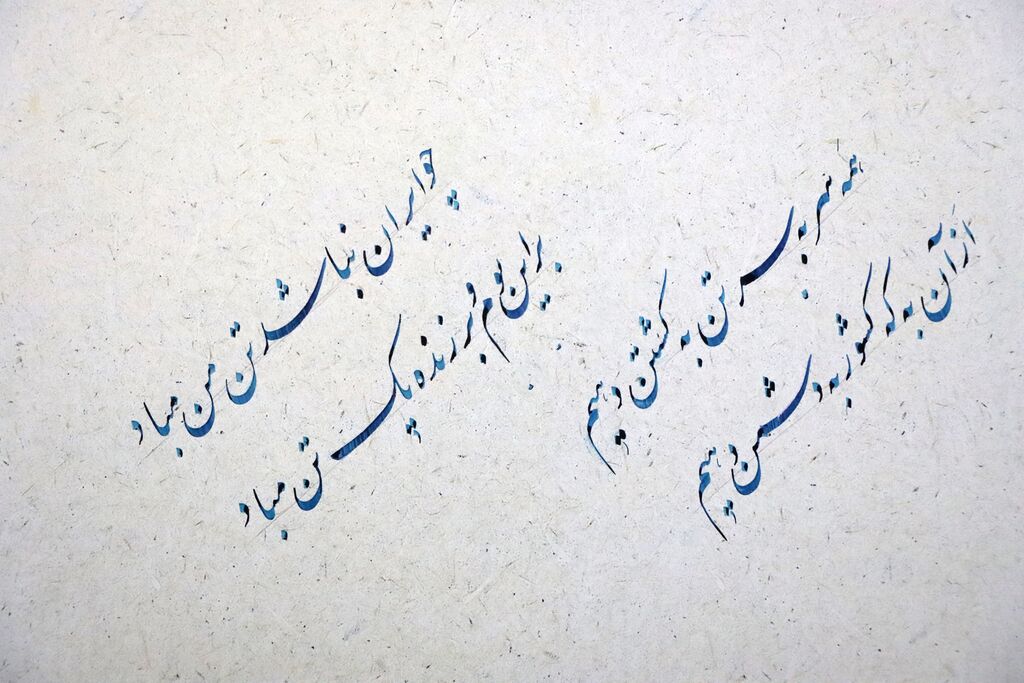 همه سر به سر تن به کشتن دهیم
از آن به که کشور به دشمن دهیم
چو ایران نباشد تن من مباد
براین بوم و بر زنده یک تن مباد